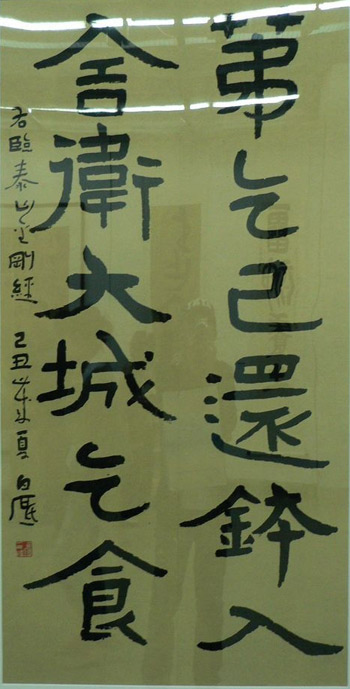 苐乞已還鉢入
舍衛大城乞食
右臨泰山金剛經 己丑 夏 白